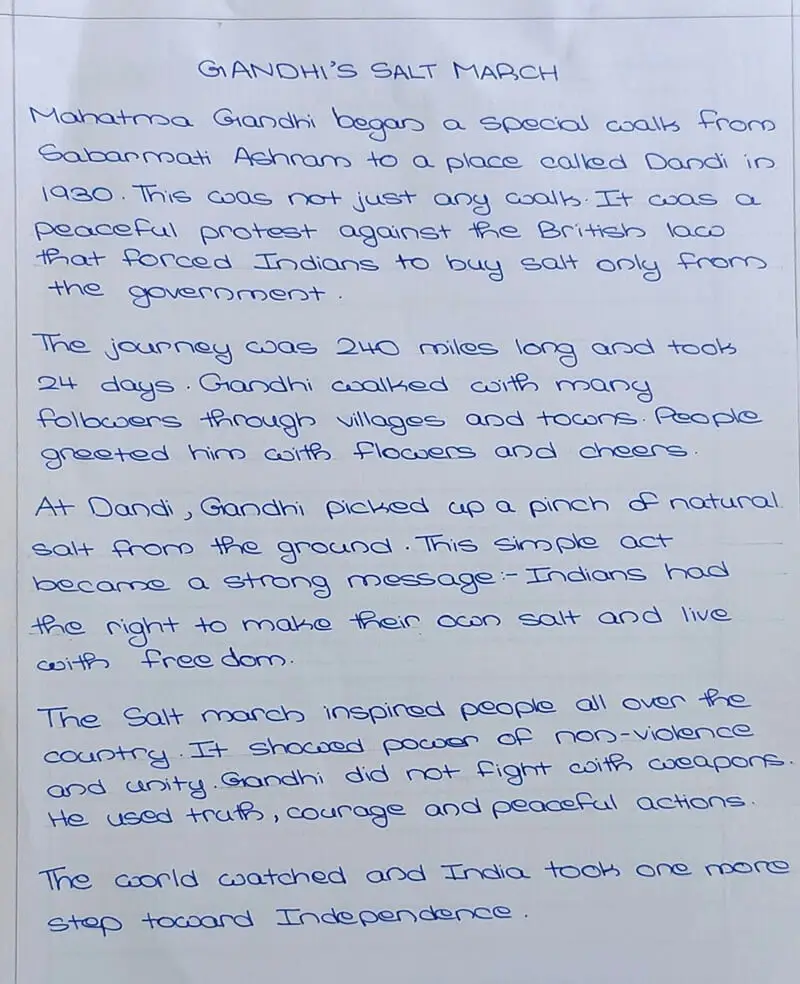 GANDHI'S SALT MARCH
Mahatma Gandhi began a special walk from
Sabarmati Ashram to a place called Dandi in
1930. This was not just any walk. It was a
peaceful protest against the British law
that forced Indians to buy salt only from
the government.
The journey was 240 miles long and took
24 days. Gandhi walked with many
followers through villages and towns. People
greeted him with flowers and cheers.
At Dandi, Gandhi picked up a pinch of natural
salt from the ground. This simple act
became a strong message:- Indians had
the right to make their own salt and live
with freedom.
The Salt march inspired people all over the
country. It showed power of non-violence
and unity. Gandhi did not fight with weapons.
He used truth, courage and peaceful actions.
The world watched and India took one more
step toward Independence.